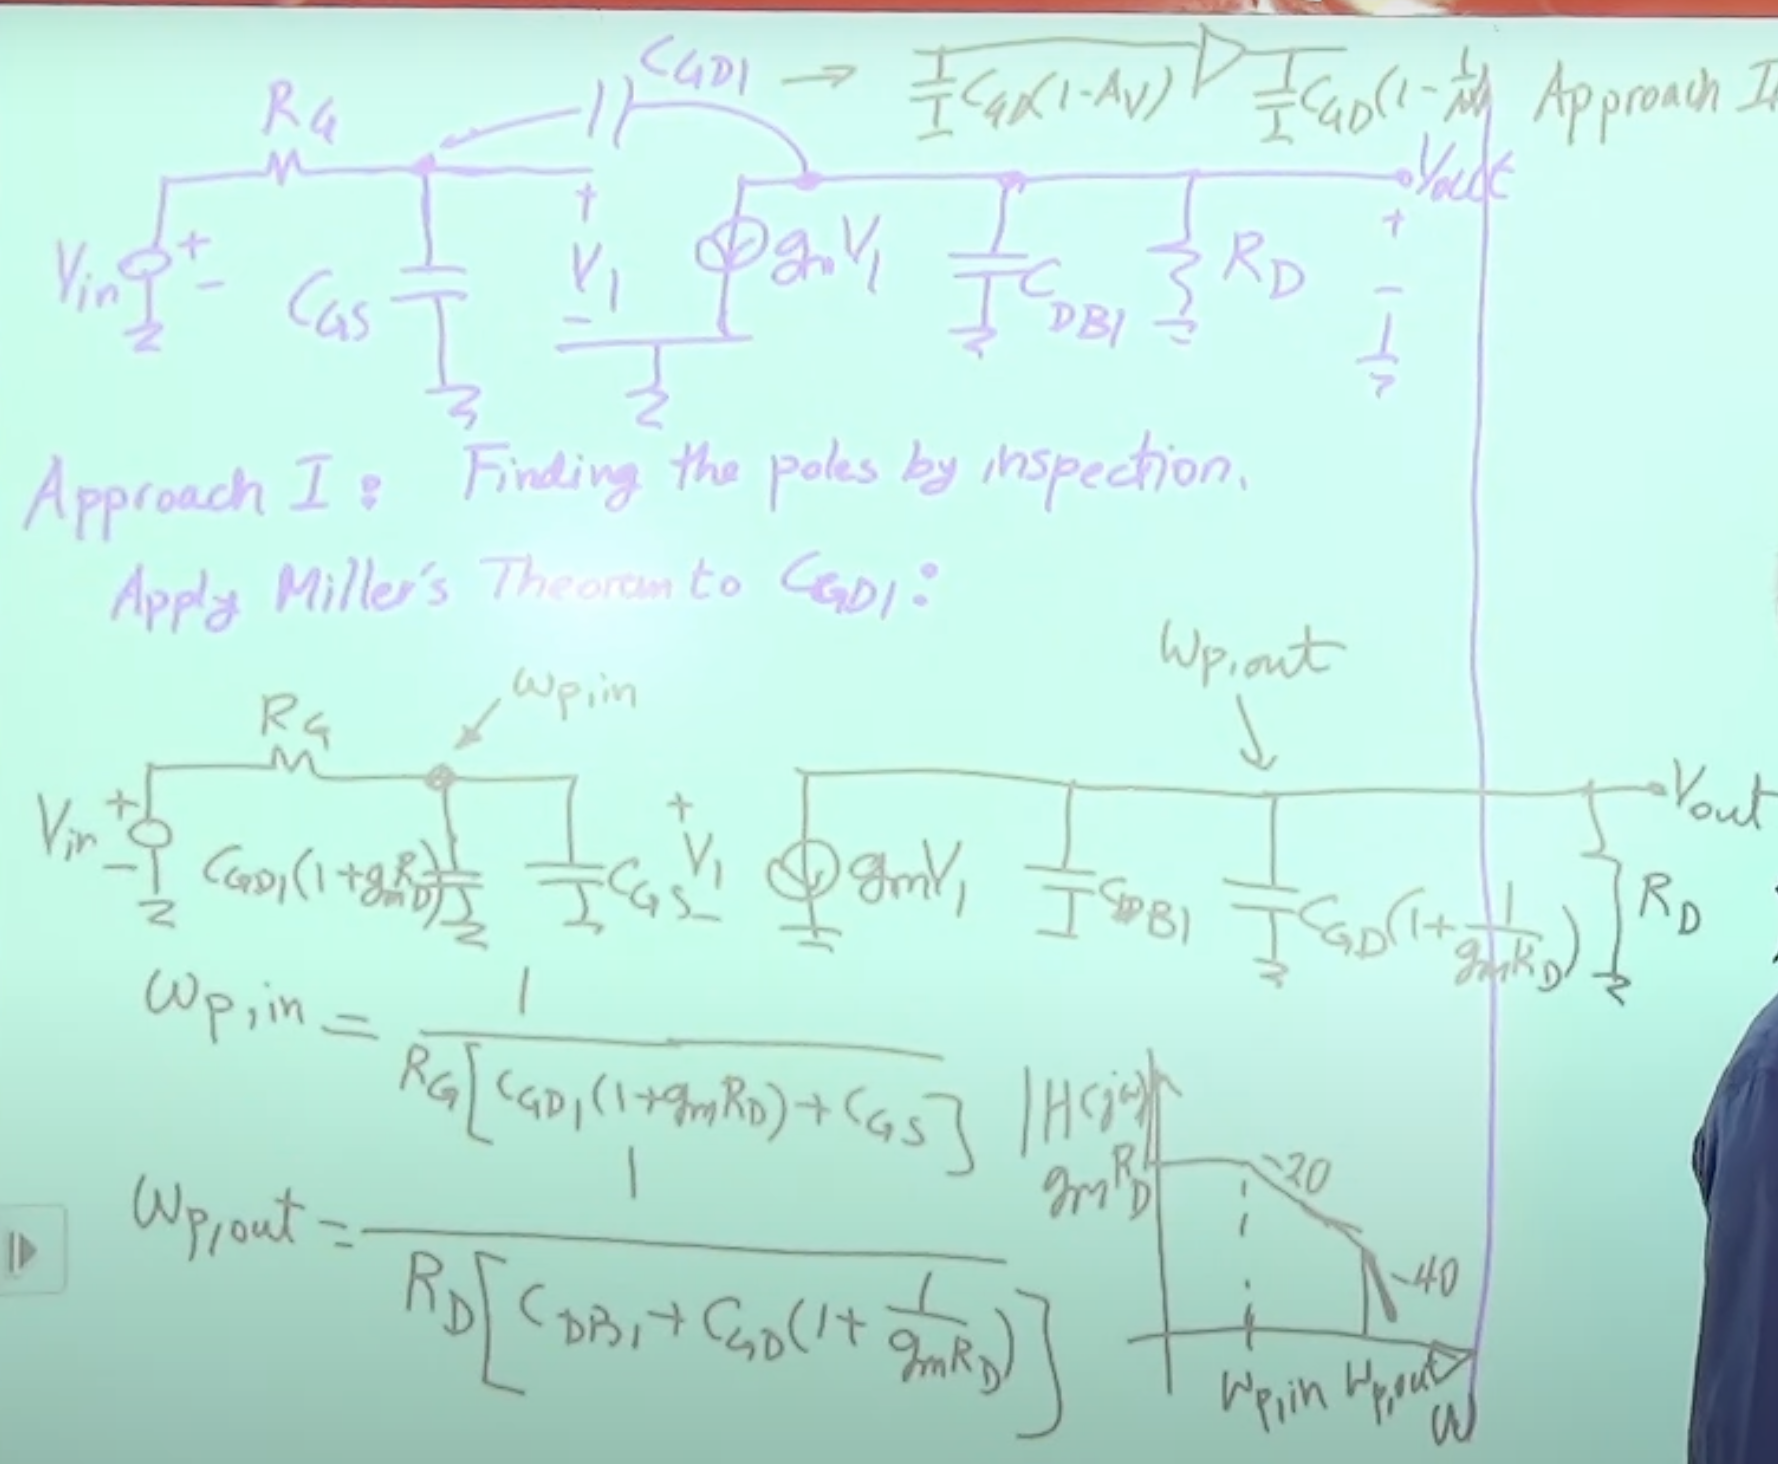 C_GD1 → C_GD(1-A_V) C_GD(1-1/A_V) Approach II
R_G
V_in + - C_GS + V_1 - g_mV_1 C_DB1 R_D V_out + -
Approach I: Finding the poles by inspection.
Apply Miller's Theorem to C_GD1:
ω_p,in
ω_p,out
R_G
V_in + - C_GD1(1+g_mR_D) C_GS + V_1 - g_mV_1 C_DB1 C_GD(1+1/(g_mR_D)) R_D V_out
ω_p,in = 1/(R_G[C_GD1(1+g_mR_D)+C_GS])
ω_p,out = 1/(R_D[C_DB1+C_GD(1+1/(g_mR_D))])
|H(jω)|
g_mR_D
-20
-40
ω_p,in ω_p,out
ω